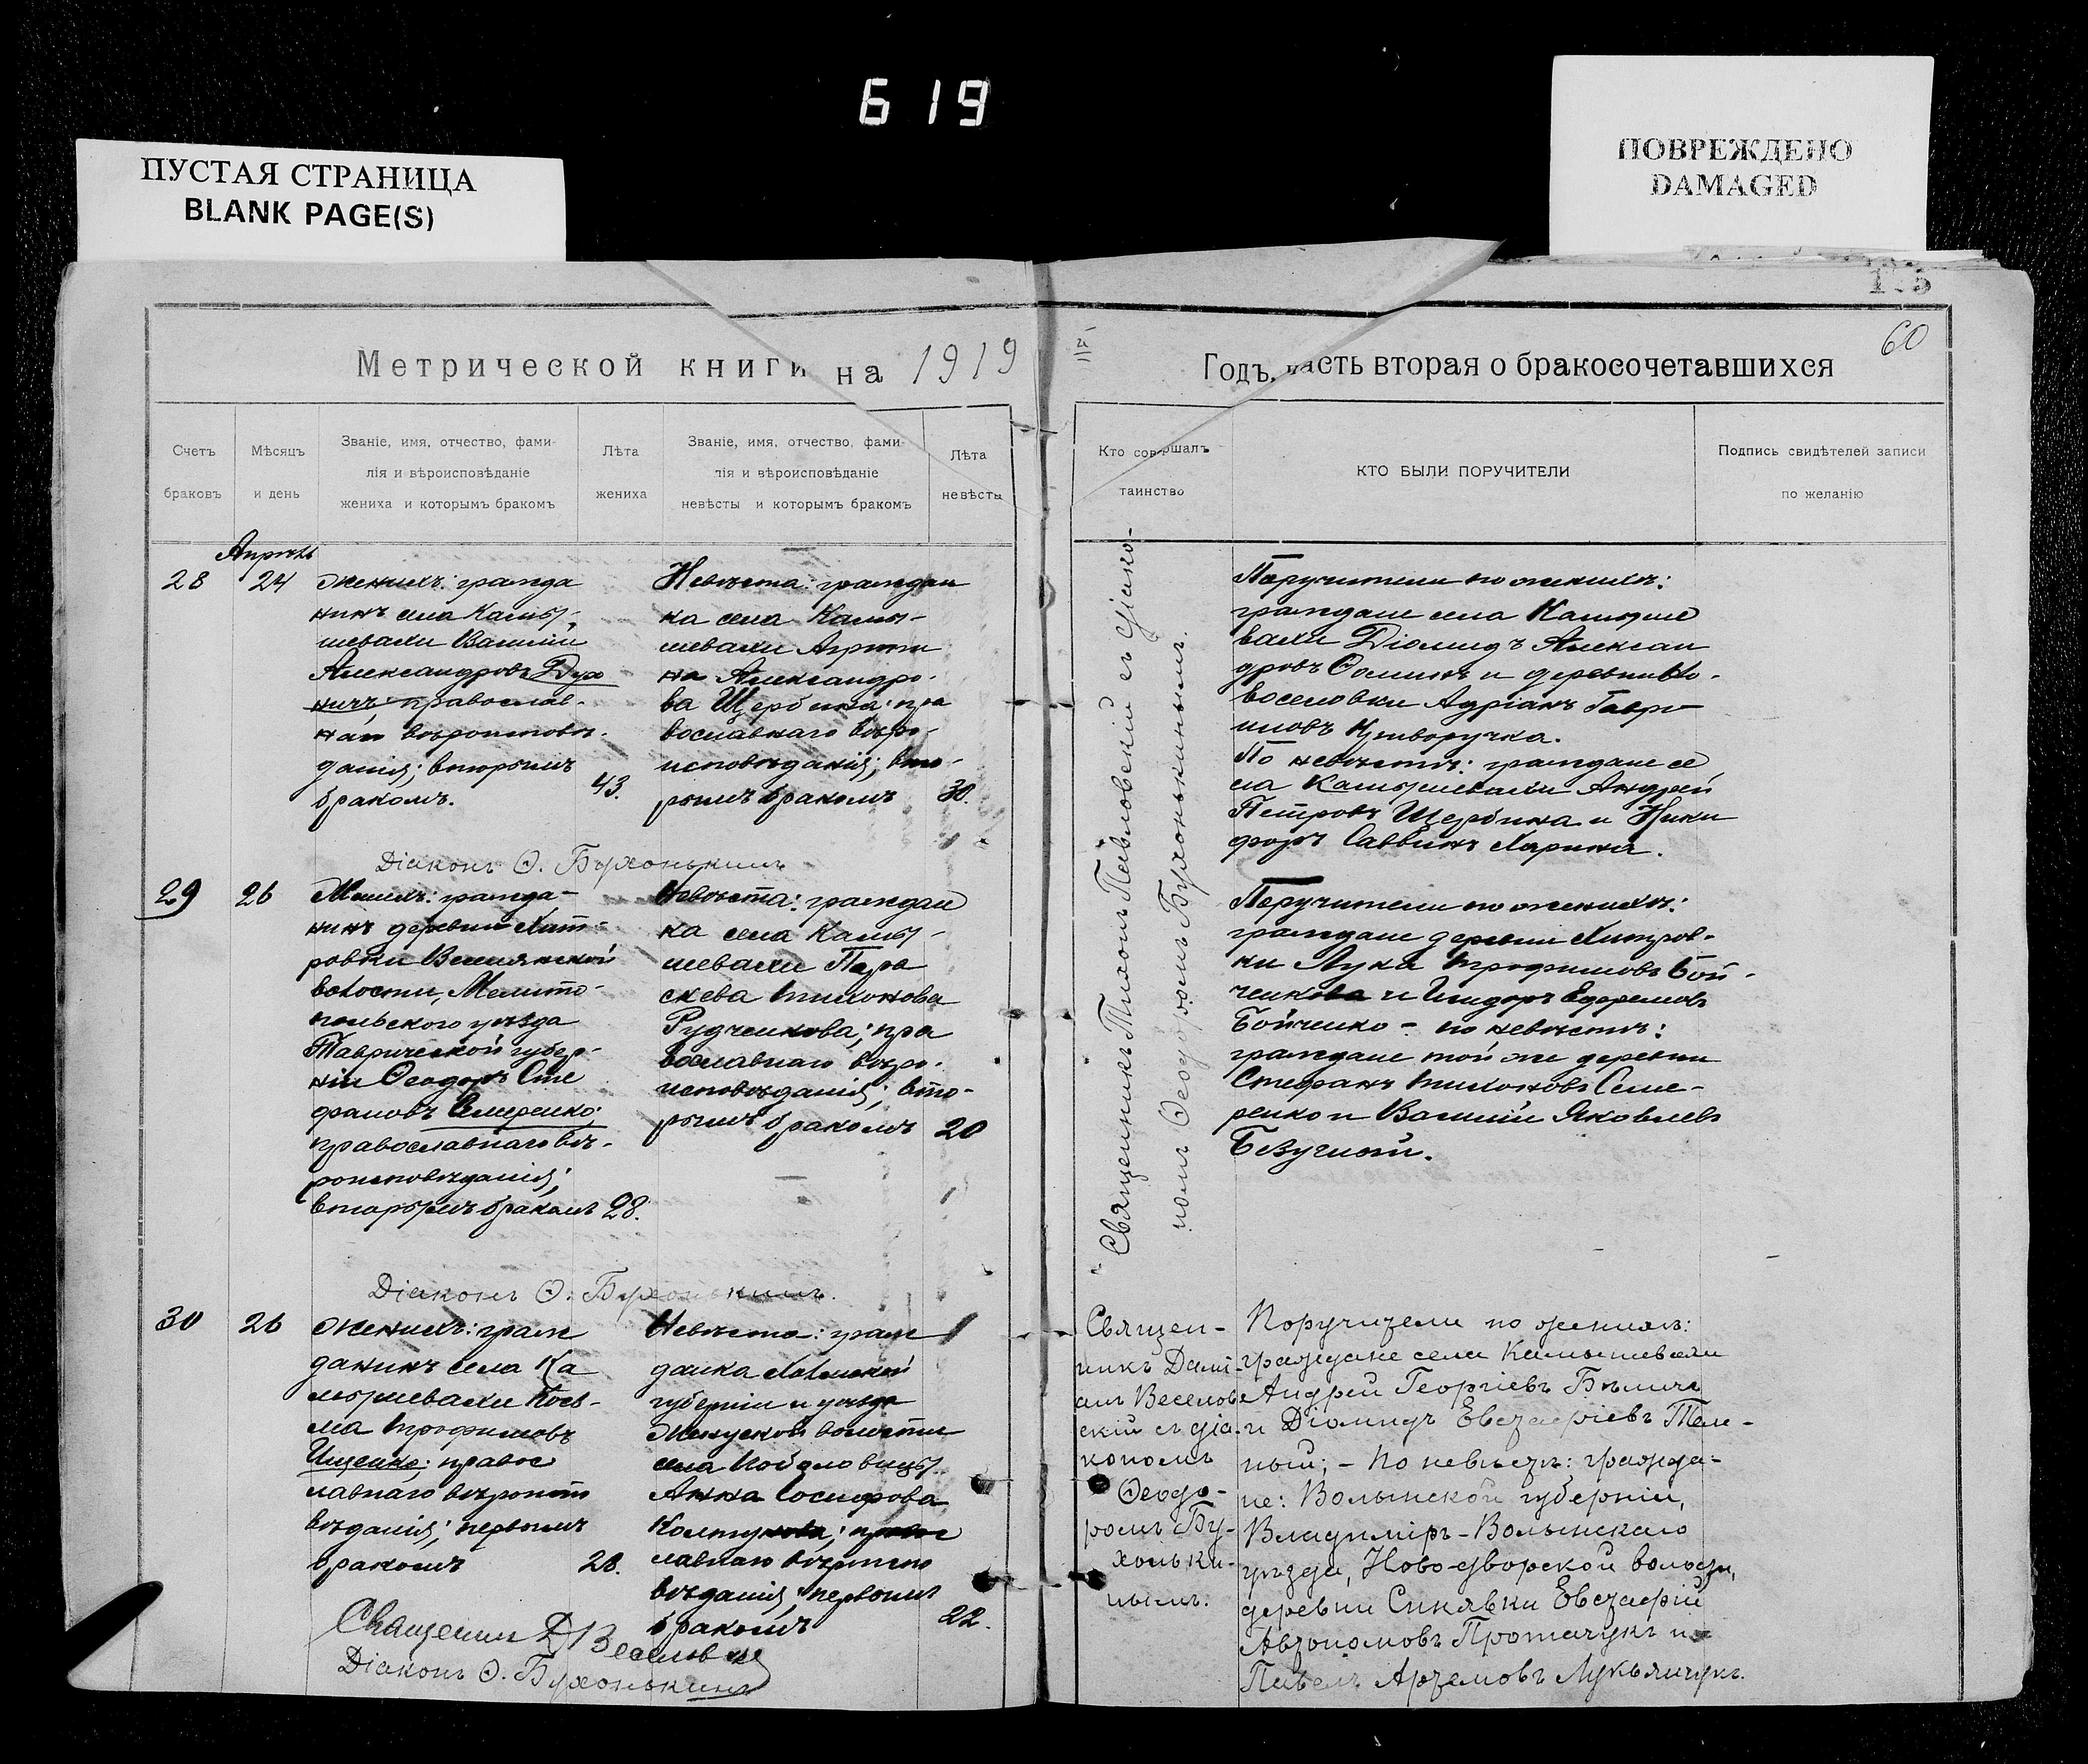 6 19
ПУСТАЯ СТРАНИЦА
BLANK PAGE(S)
ПОВРЕЖДЕНО
DAMAGED
60
Метрической книги на 1919
й
Годъ, часть вторая о бракосочетавшихся
Счетъ
браковъ
Мѣсяцъ
и день
Званіе, имя, отчество, фами-
лія и вѣроисповѣданіе
жениха и которымъ бракомъ
Лѣта
жениха
Званіе, имя, отчество, фами-
лія и вѣроисповѣданіе
невѣсты и которымъ бракомъ
Лѣта
невѣсты
Кто совершалъ
таинство
КТО БЫЛИ ПОРУЧИТЕЛИ
Подпись свидѣтелей записи
по желанію
Апрѣль
28
24
Женихъ: гражда
нинъ села Камы-
шевахи Василій
Александровъ Дух
ничъ православ-
наго вѣроисповѣ-
данія; вторымъ
бракомъ.
43.
Невѣста: граждан
ка села Камы-
шевахи Агрипи
на Александро-
ва Щербина; пра
вославнаго вѣро-
исповѣданія; вто-
рымъ бракомъ
30.
Священникъ Тихонъ Павловскій съ діако-
номъ Ѳеодоромъ Бухонькинымъ.
Поручители по женихѣ:
граждане села Камыше
вахи Діомидъ Алексан
дровъ Ѳоминъ и деревни Но-
воселовки Адріанъ Гаври
иловъ Криворучка.
По невѣстѣ: граждане се
ла Камышевахи Андрей
Петровъ Щербина и Ники
форъ Саввинъ Харина.
Діаконъ Ѳ. Бухонькинъ
29
26
Женихъ: гражда-
нинъ деревни Хит-
ровки
волости, Мелито-
польского уѣзда
Таврической губер-
ніи Ѳеодоръ Сте
фановъ Семеренко;
православнаго вѣ-
роисповѣданія;
вторымъ бракомъ
28.
Невѣста: граждан
ка села Камы-
шевахи Пара
скева Тихонова
Рудченкова; пра
вославнаго вѣро-
исповѣданія; вто-
рымъ бракомъ
20
Поручители по женихѣ:
граждане деревни Хитров-
ки Лука Трофимовъ Бой-
ченко и Исидоръ Ефремовъ
Бойченко - по невѣстѣ:
граждане той же деревни
Стефанъ Тихоновъ Семе-
ренко и Василій Яковлевъ
Безуглый.
Діаконъ Ѳ. Бухонькинъ.
30
26
Женихъ: граж
данинъ села Ка
мышевахи Кось-
ма Трофимовъ
Ищенко; правос
лавнаго вѣроиспо
вѣданія; первымъ
бракомъ
28.
Невѣста: граж
данка Холмской
губерніи и уѣзда
волости
села
Анна Іосифова
правос
лавнаго вѣроиспо
вѣданія; первымъ
бракомъ
22.
Священ-
никъ Дамі-
анъ Веселов-
скій съ діа-
кономъ
Ѳеодо-
ромъ Бу-
хоньки-
нымъ.
Поручители по женихѣ:
граждане села Камышевахи
Андрей Георгіевъ Бѣличъ
и Діомидъ Евстафіевъ Теп-
лый; - По невѣстѣ: гражда-
не: Волынской губерніи,
Владиміръ-Волынскаго
уѣзда, Ново-дворской волости,
деревни Синявки Евстафій
Автономовъ Протачукъ и
Павелъ Артемовъ Лукьянчукъ.
Священникъ Д Веселовскій
Діаконъ Ѳ. Бухонькинъ